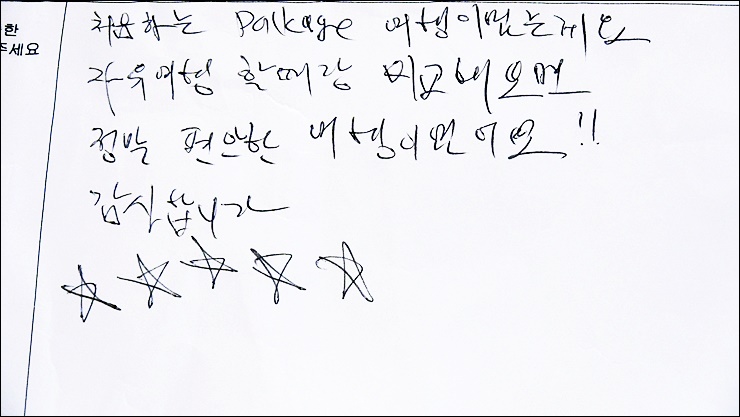 한
주세요
처음하는 Package 여행이었는데요
자유여행 할때랑 비교해보면
정말 편안한 여행이였어요!!
감사합니다